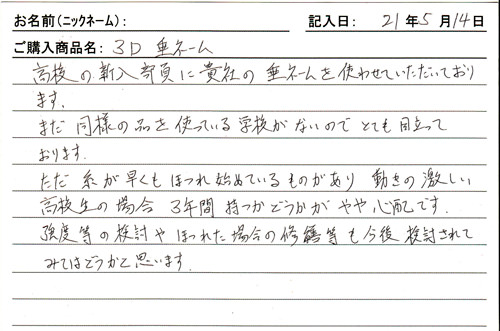 お名前(ニックネーム): 記入日: 21年5月14日
ご購入商品名: 3D 垂ネーム
高校の新入部員に貴社の垂ネームを使わせていただいており
ます。
まだ同様の品を使っている学校がないのでとても目立って
おります。
ただ糸が早くもほつれ始めているものがあり 動きの激しい
高校生の場合 3年間持つかどうかがやや心配です。
強度等の検討やほつれた場合の修繕等も今後検討されて
みてはどうかと思います。